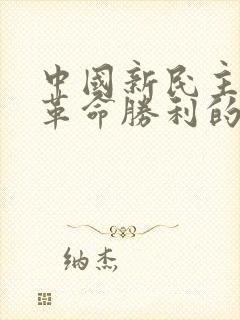 中國新民主
革命勝利的
纳杰